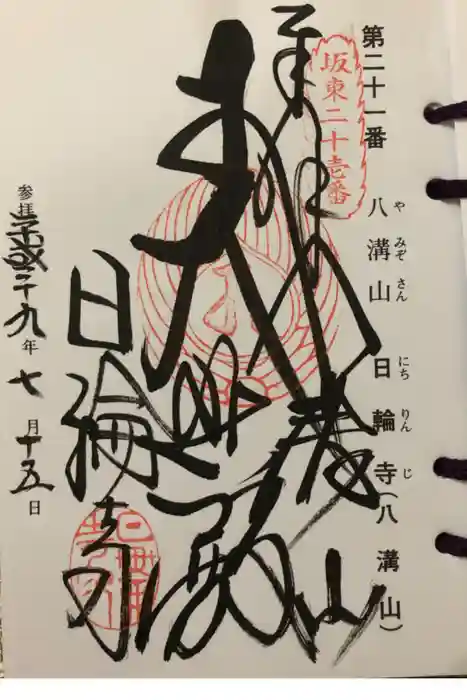 第二十一番
八溝山日輪寺(八溝山)
やみぞさんにちりんじ
坂東二十壱番
奉拝
八溝山
大悲殿
日輪寺
参拝平成二十九年七月十五日